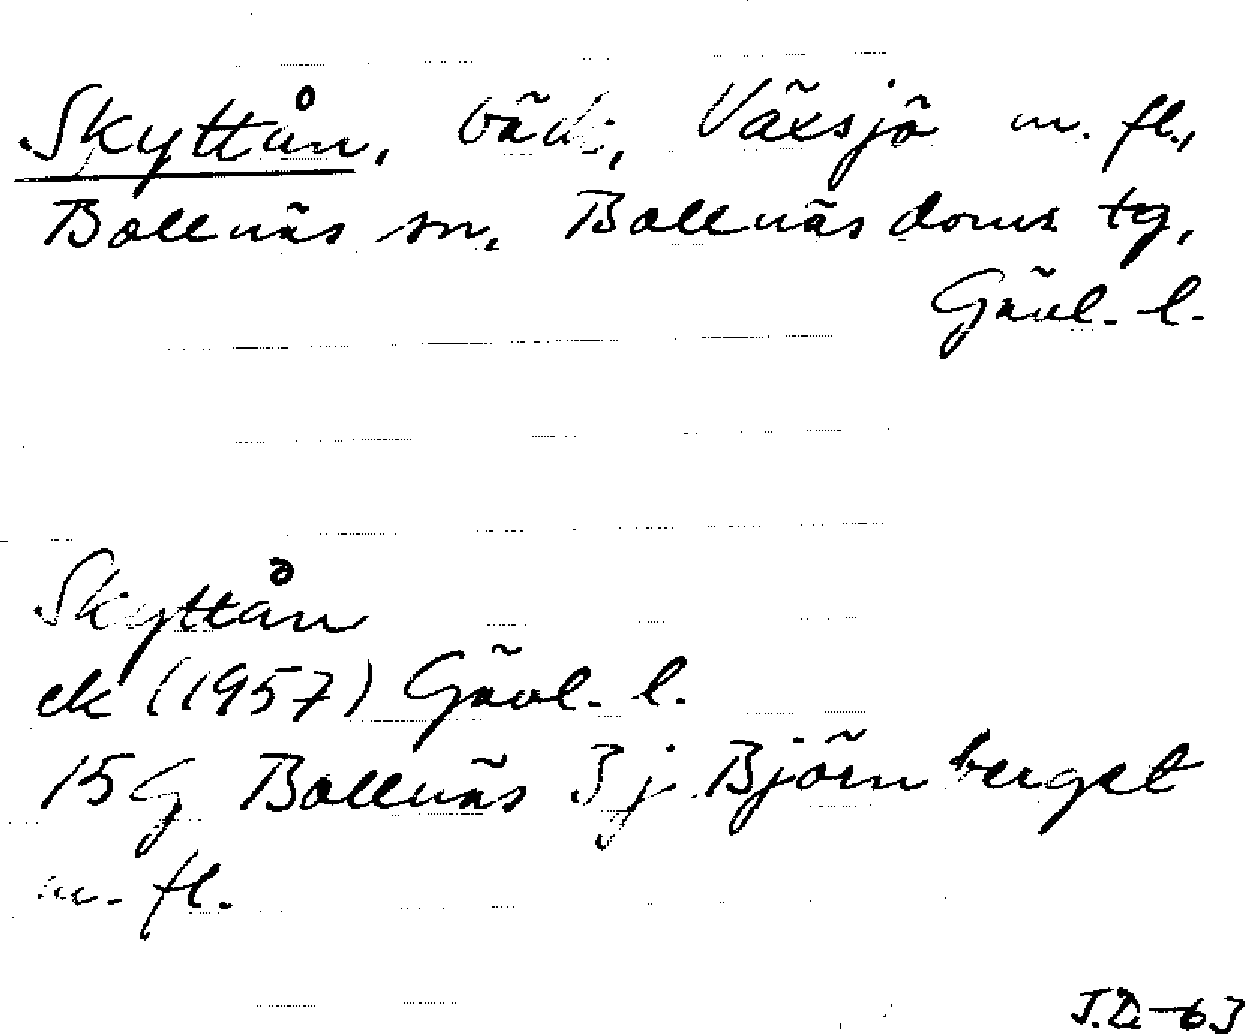 Skyttån, bäck, Växsjö m. fl.,
Bollnäs sn, Bollnäs doms tg,
Gävl. l.
Skyttån
ek (1957) Gävl. l.
15G Bollnäs 3j Björnberget
m. fl.
J.D. -63